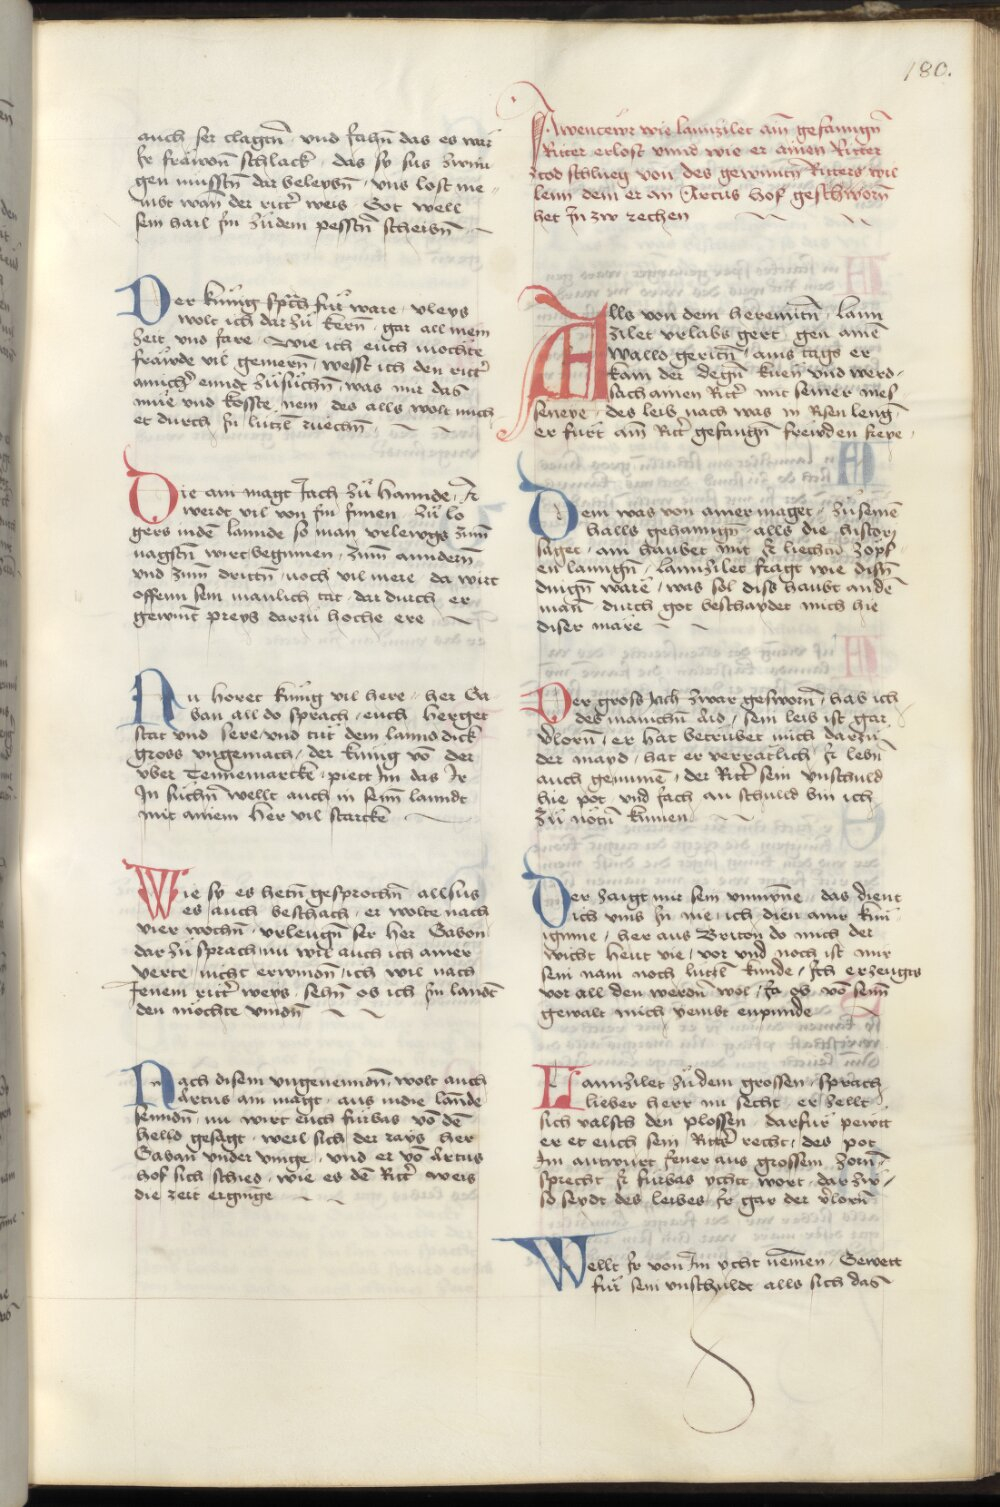 180.
auch ser clagtn̄ · vnd sahn̄ das es war
Ir fräwon̄ schlack · das sy sus zwin
gen musstn̄ dar beleybn̄ · vns lost nie
mbt wan̄ der ritt̄ weis · Got well
sein hail Im zu dem pesstn̄ scheibn̄ ·
Der kunig sprach fur ware · vleys
wolt ich dar zu kern̄ · gar all mein
zeit vnd fare · Wie ich euch mochte
fräwde vil gemern̄ · wesst ich den ritt̄
annch̄ ennde zu suchn̄ · was mir das
mue vnd kosste nem · des alls wolt mich
et durch In lutzl ruechn̄ ·
Die am magt Jach zu hannde · Ir
werdt vil von Im Innen · zu lo
gers inden lannde so man vrlewgs zum̄
nagstn̄ wirt begunnen · zum̄ anndern̄
vnd zum̄ drittn̄ · noch vil mere · da wirt
offenn sein manlich tat · dar durch er
gewint̄ preys darzu hoche ere
Nu horet kunig vil here · her Ga
ban all do sprach · euch herget
stat vnd sere · vnd tut dem lanns dick
gross vngemach · der kunig vō der
vber Tennemarcke · piett Im das Ir
In suchn̄ wellt auch in sein̄ lanndt
mit ainem her vil starcke
Wie sy es hetn̄ gesprochn̄ allsus
es auch beschach · er wolte nach
vier wochn̄ · vrleugn̄ ser her Gabon
dar zu sprach · nu wil auch ich ainer
verte nicht erwindn̄ · ich wil nach
Jenem ritt̄ weys · sehn̄ ob ich Im landt
den mochte vindn̄
Nach disem vngenemdn̄ · wolt auch
Artus am magt · aus indie lannde
senndn̄ · nu wirt euch furbas vō dē
helld gesagt · weil sich der rays her
Gaban vnder vinge · vnd er vō Artus
hof sich schied · wie es dē Ritt̄ weis
die zeit erginge
Awentewr wie lannzilet ain̄ gefanngn̄
Ritter erlost vnnd wie er ainen Ritter
ztod schlueg von des gewunitn̄ Ritters wil
lenn dem er an Artus hof geschworn̄
het In zw rechen
Alls von dem heremitn̄ · lann
zilet vrlabs gert · gen ainē
Walld gericht̄ · ains tags er
kam der degn̄ kuen̄ vnd werd ·
sach ainen Ritt̄ mit seiner mes
seneye · des leib nach was in Risen lenḡ
er furt ain̄ Ritt̄ gefangn̄ frewden freye ·
Dem was von ainer maget · zu seinē
halls gehanngn̄ · alls die histori
saget · ain haubet mit Ir liechtn̄ zopf
en lanngn̄ · lannzilet fragt wie disn̄
dingn̄ ware · was sol diss haubt an dē
man̄ durch got beschaydet mich hie
diser märe
Der gross Jach zwar gesworn̄ · hab ich
des manichn̄ Aid · sein leib ist gar
v̄lorn̄ · er hat betrubet mich darzu
der mayd · hat er verratlich Ir lebn̄
auch genummē · der Ritt̄ sein vnschuld
hie pot · vnd sach an schulld bin ich
zu nötn̄ kumen
Der zaigt mir sein vnmynne · das dient
ich vmb In nie · ich dien aim̄ kuni
iginne · her aus Briton do mich der
wicht heut vie · vor vnd noch ist mir
sein nam noch lutzl kunde · Ich erzeugts
vor all den werdn̄ wol · Ja ob vō sein̄
gewalt mich yembt enpunde
Lannzilet zu dem grossen · sprach
lieber herr nu secht · er zellt
sich valsch den plossen · darfur pewtt
er et euch sein Ritt̄ recht · des pot
Im antwurt Jener aus grossem zorn̄
sprecht Ir furbas ycht wort · dar zw
so seydt des leibes Ir gar der v̄lorn̄
Wellt Ir von Im ycht nemen · Gewett
fur sein vnschuldt alls sich das